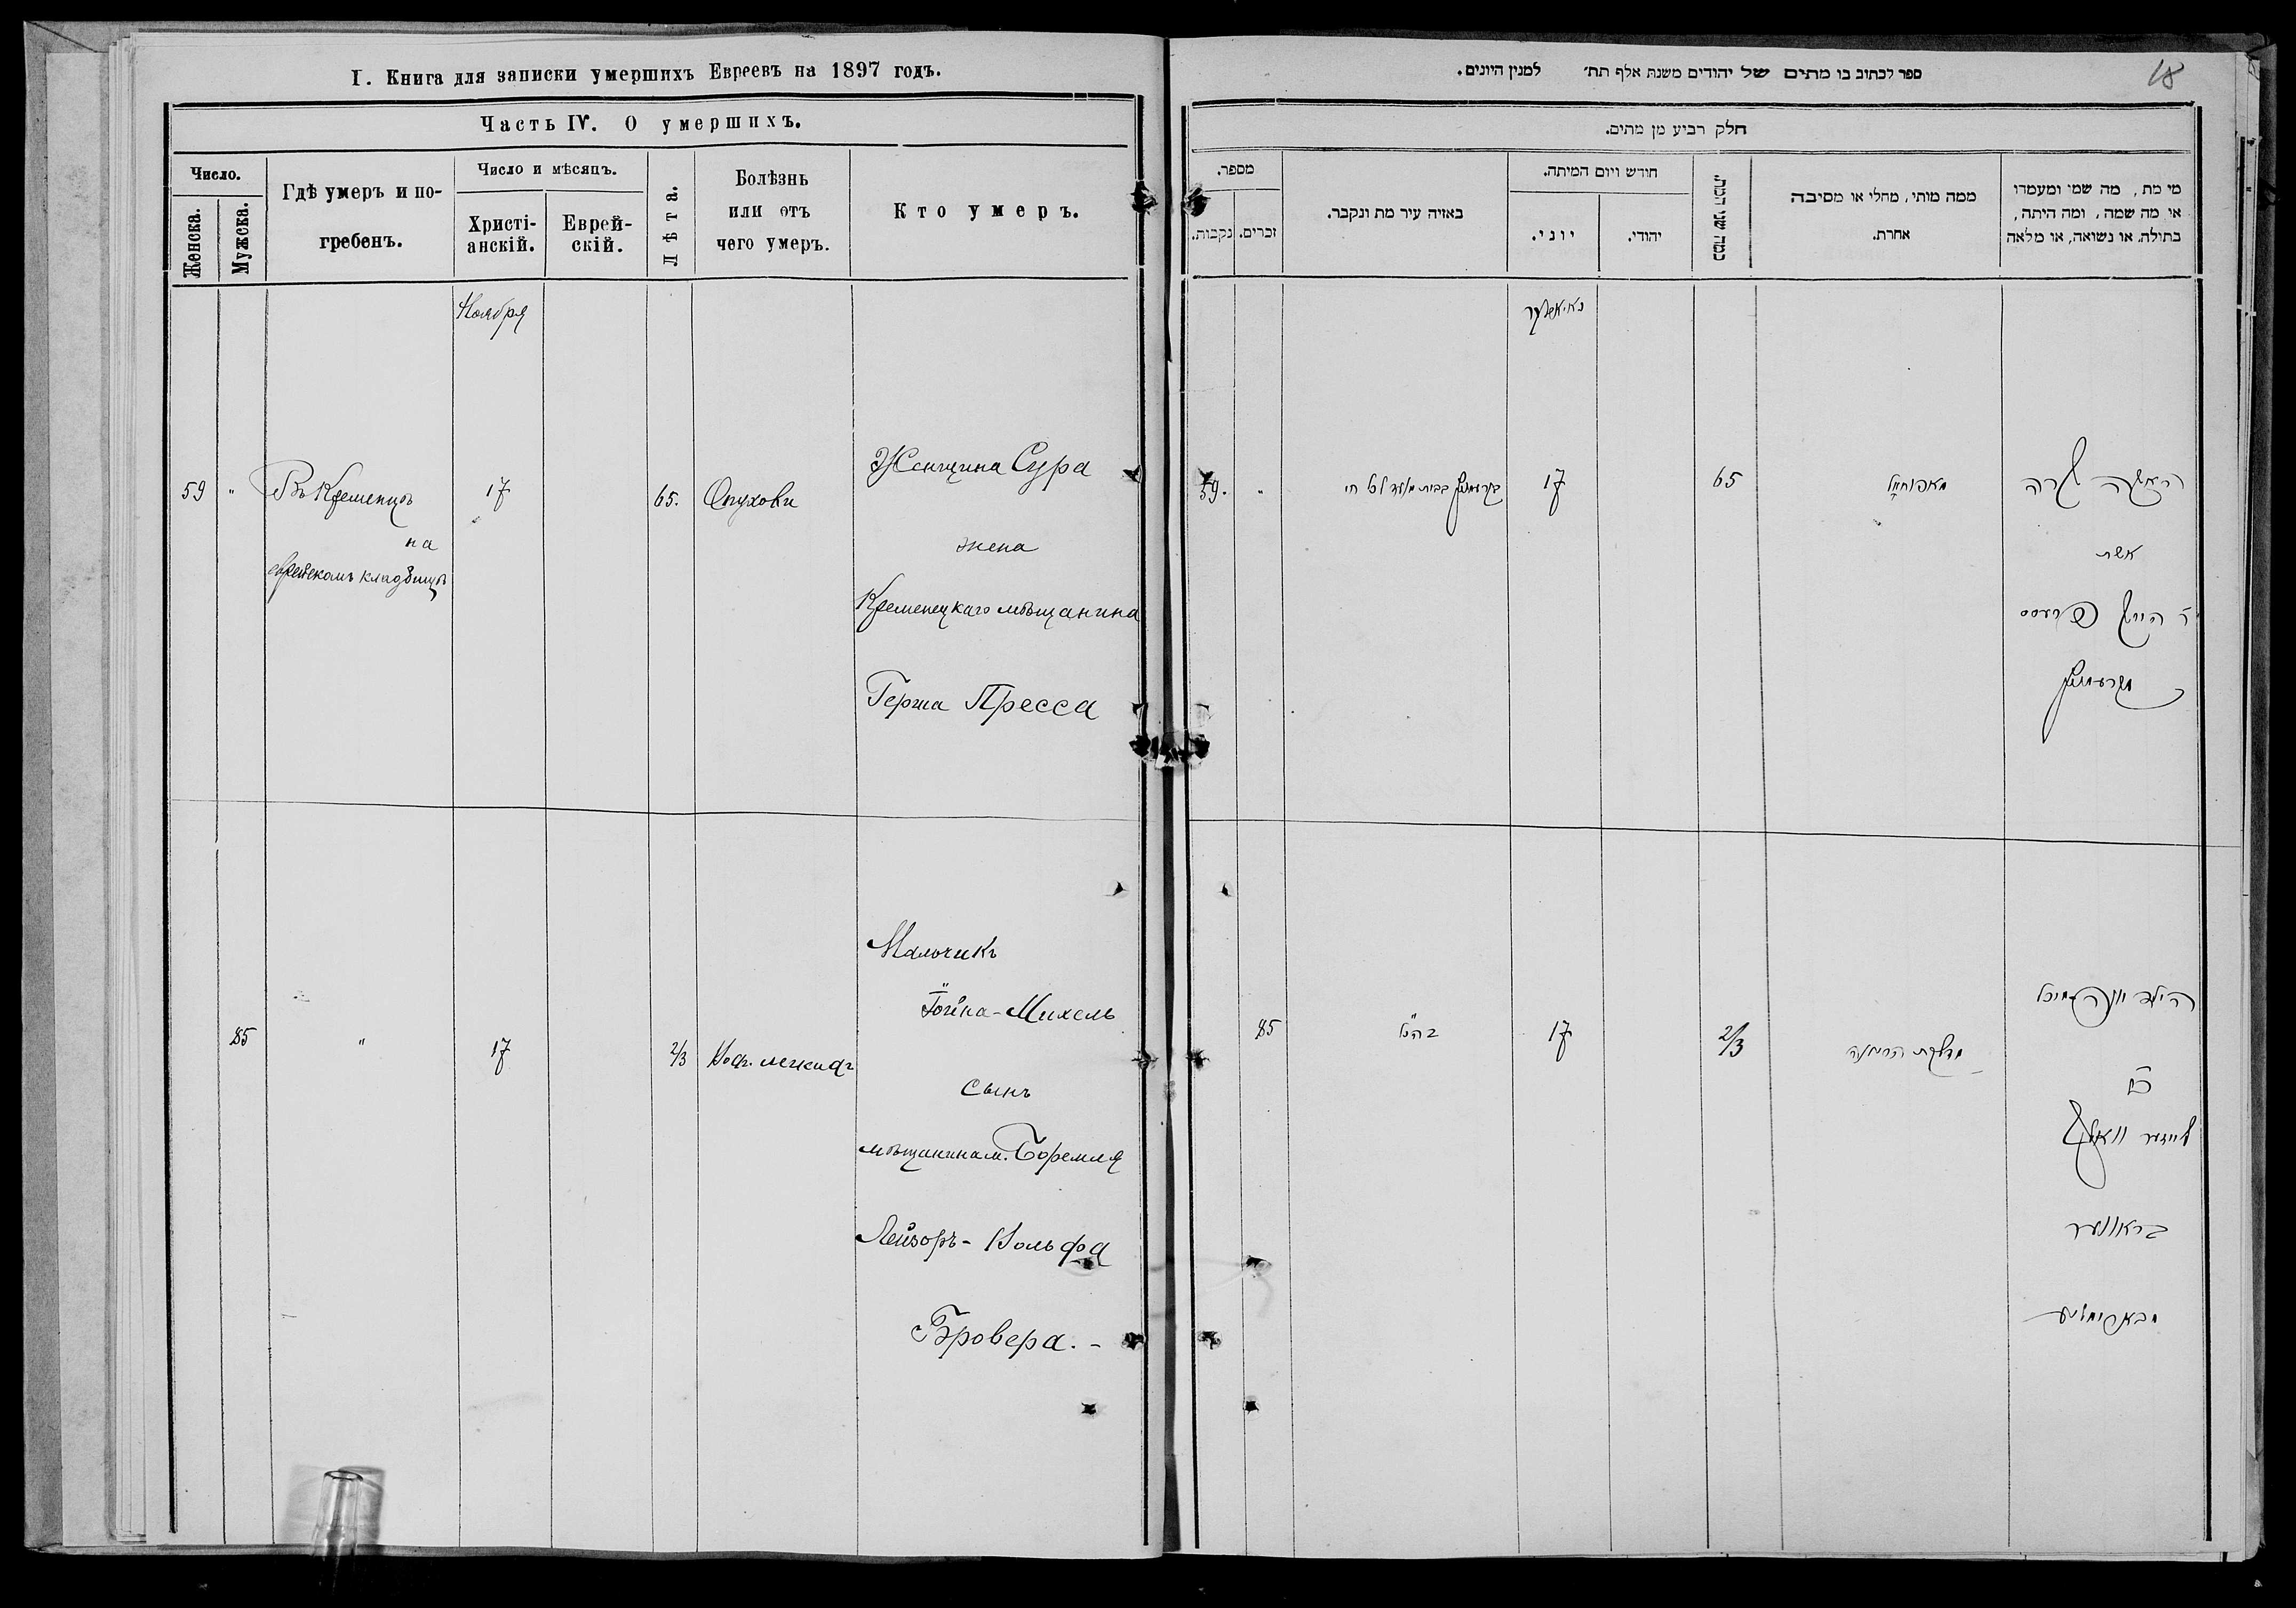 I. Книга для записки умершихъ Евреевъ на 1897 годъ.
Часть IV. О умершихъ.
Число.
Женска.
Мужска.
Гдѣ умеръ и по-
гребенъ.
Число и мѣсяцъ.
Христі-
анскій.
Еврей-
скій.
Лѣта.
Болѣзнь
или отъ
чего умеръ.
Кто умеръ.
Ноября
59
"
Въ Кременцѣ
на
еврейскомъ кладбищѣ
17
65.
Опухоли
Женщина Сура
жена
Кременецкаго мѣщанина
Герша Пресса
85
"
17
2/3
Мальчикъ
Іойна-Михель
сынъ
мѣщанина м. Боремля
Лейзоръ-Вольфа
Бровера. -
18
ספר לכתוב בו מתים של יהודים משנת אלף תת׳ למנין היונים.
חלק רביע מן מתים.
מספר.
נקבות.
זכרים.
באיזה עיר מת ונקבר.
חודש ויום המיתה.
יוני.
יהודי.
כמה שני המת.
ממה מותי, מחלי או מסיבה
אחרת.
מי מת, מה שמו ומעמדו
או מה שמה, ומה היתה,
בתולה, או נשואה, או מלאה
59.
"
17
65
האשה שרה
אשת
ר׳ הירש פרעסס
מקרעמניץ
85
כנ"ל
17
2/3
הילד יונה מיכל
בן
לייזער וואלף
בראווער